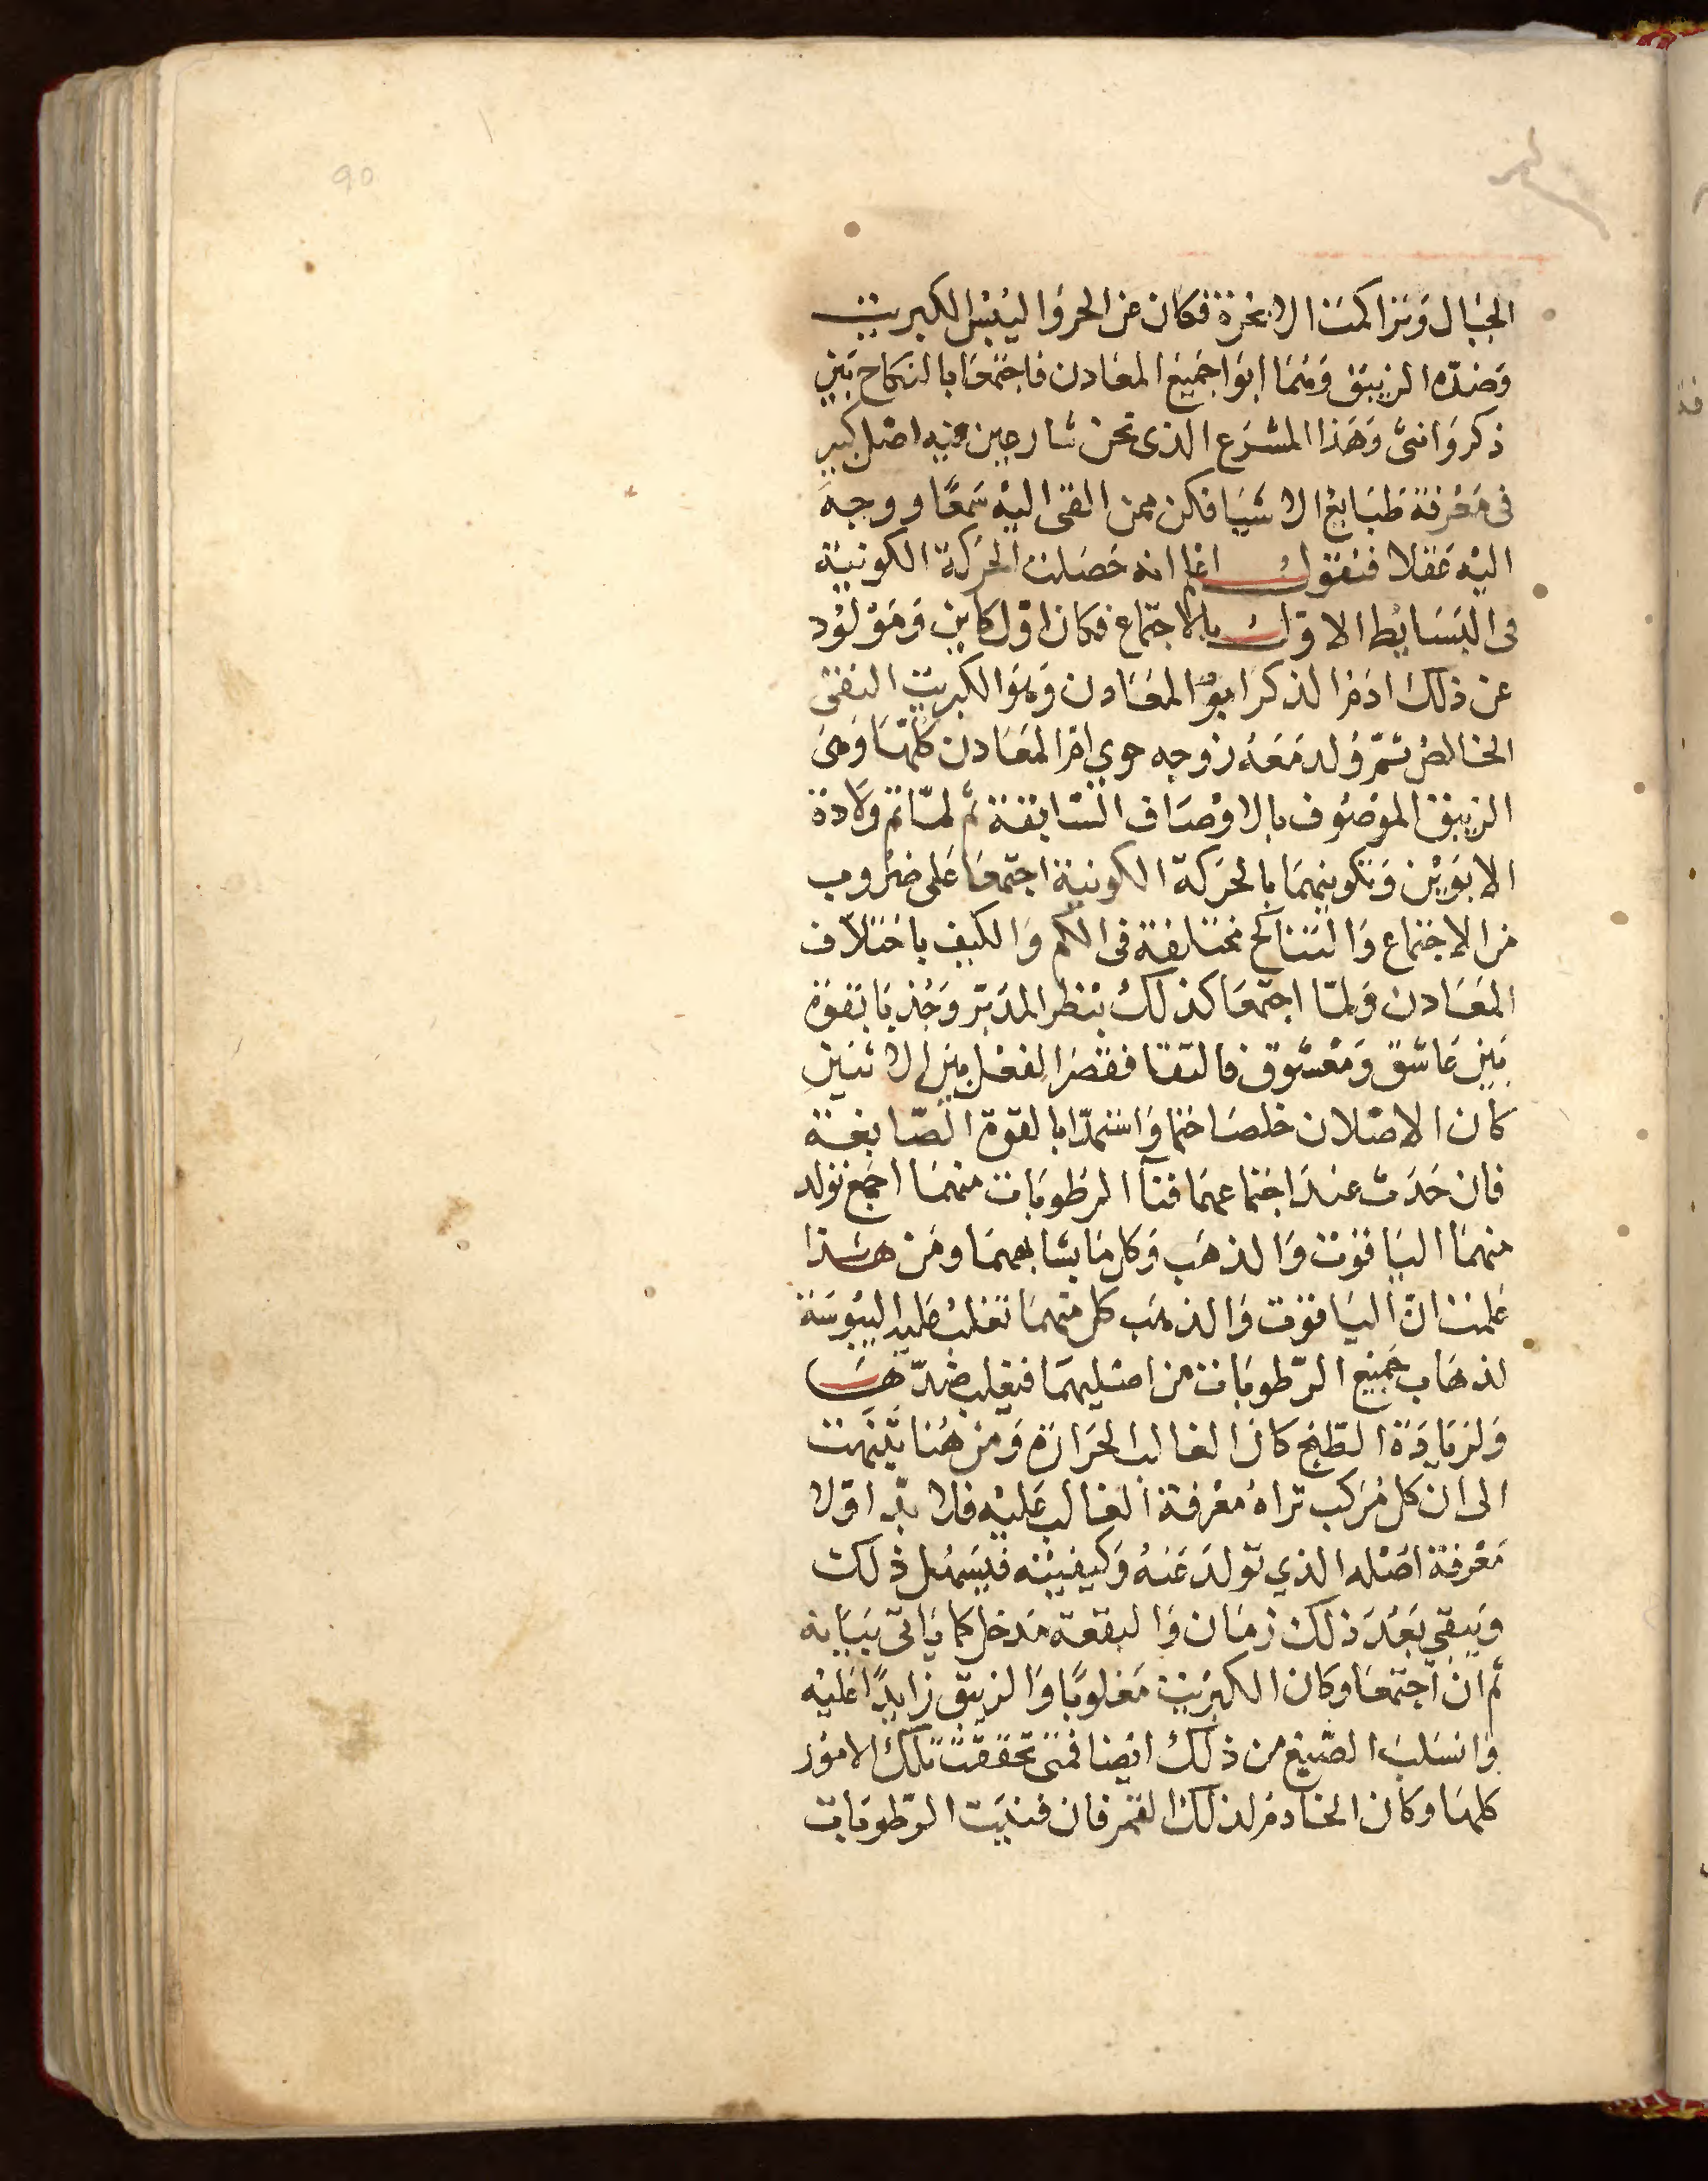 90
الجبال وتراكمت الابخرة فكان من الحر واليبس الكبريت
وضده الزيبق وهما ابوا جميع المعادن فاجتمعا بالنكاح بين
ذكر وانثى وهذا المشرع الذى نحن شارعين فيه اصل كبير
فى معرفة طبايع الاشيا فكن ممن القى اليه سمعا ووجه
اليه عقلا فنقول انما انه حصلت الحركة الكونية
فى البسايط الاول بالاجتماع فكان اول كاين ومولود
عن ذلك ادم الذكر ابو المعادن وهو الكبريت النقى
الخالص ثم ولد معه زوجه حوي ام المعادن كلها وهى
الزيبق الموصوف بالاوصاف السابقة ثم لما تم ولادة
الابوين وتكوينهما بالحركة الكونية اجتمعا على ضروب
من الاجتماع والتناكح مختلفة فى الكم والكيف باختلاف
المعادن ولما اجتمعا كذلك بنظر المدبر وجذبا بقوة
بين عاشق ومعشوق فالتقا فقصر الفعل بين الاثنين
كان الاصلان خلصا ختما واستمدا بالقوة الصابغة
فان حدث عند اجتماعهما فنآ الرطوبات منهما اجمع تولد
منهما الياقوت والذهب وكل ما يشابههما ومن هذا
علمت ان الياقوت والذهب كل منهما تغلب عليه اليبوسة
لذهاب جميع الرطوبات من اصليهما فيغلب ضدها
ولزيادة الطبخ كان الغالب الحرارة ومن هنا تنبهت
الى ان كل مركب تراه معرفة الغالب عليه فلا بد اولا
معرفة اصله الذي تولد عنه وكيفيته فيسهل ذلك
ويبقي بعد ذلك زمان والبقعة مدخل كما ياتى بيانه
ثم ان اجتمعا وكان الكبريت مغلوبا والزيبق زايدا عليه
وانسلب الصبغ من ذلك ايضا فمتى تحققت تلك الامور
كلها وكان الخادم لذلك القمر فان فنيت الرطوبات